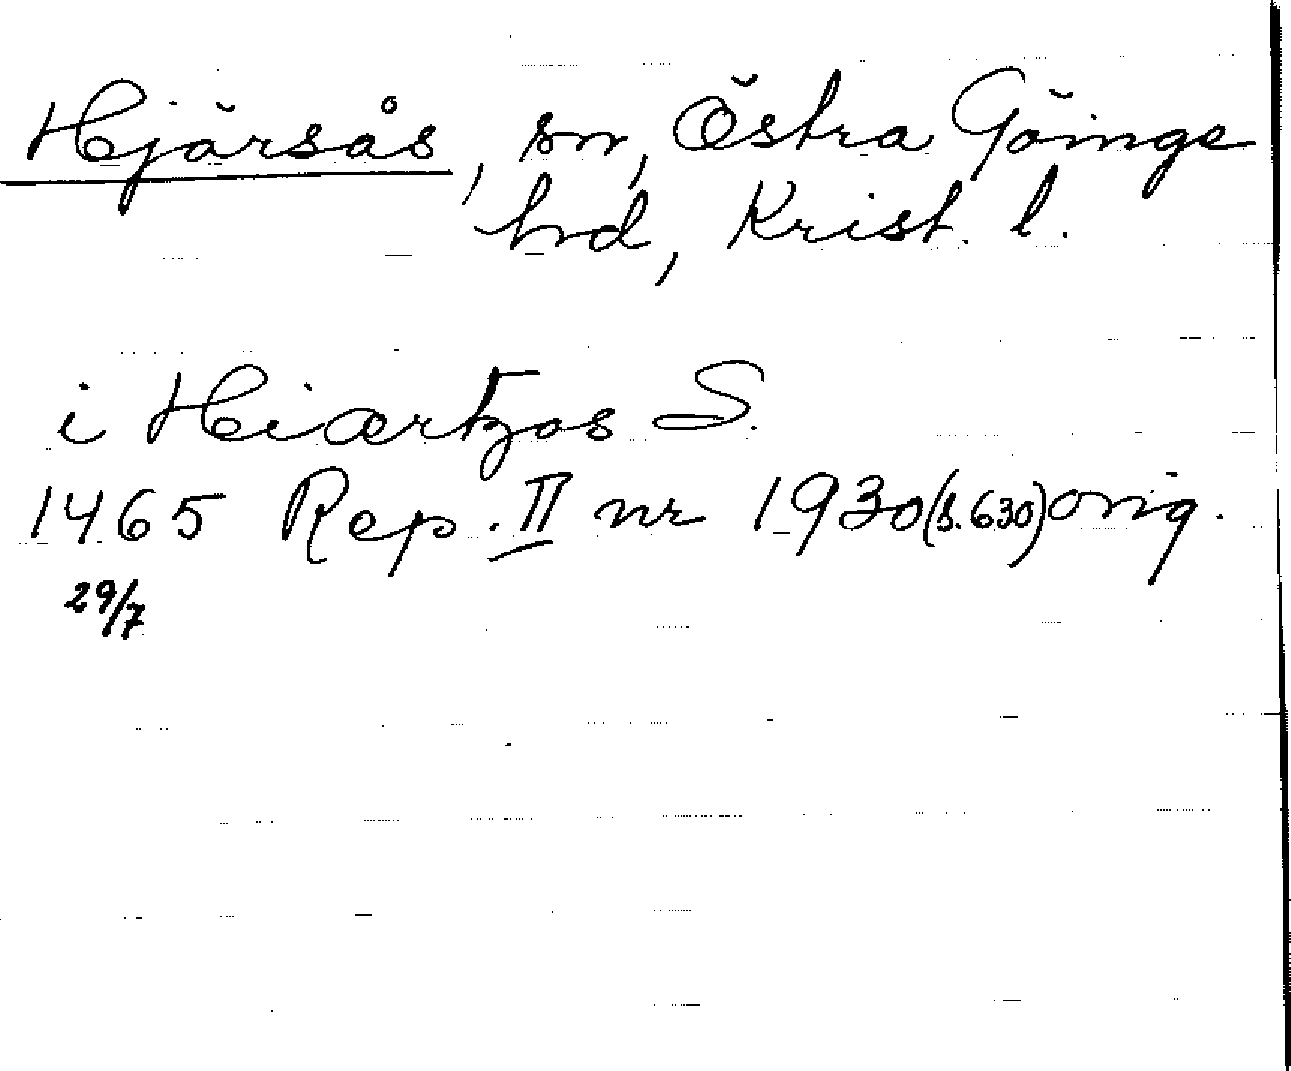 Hjärsås, sn, Östra Göinge
hrd, Krist. l.
i Hiærtzos S.
1465 Rep. II nr 1930 (s. 630) orig.
29/7